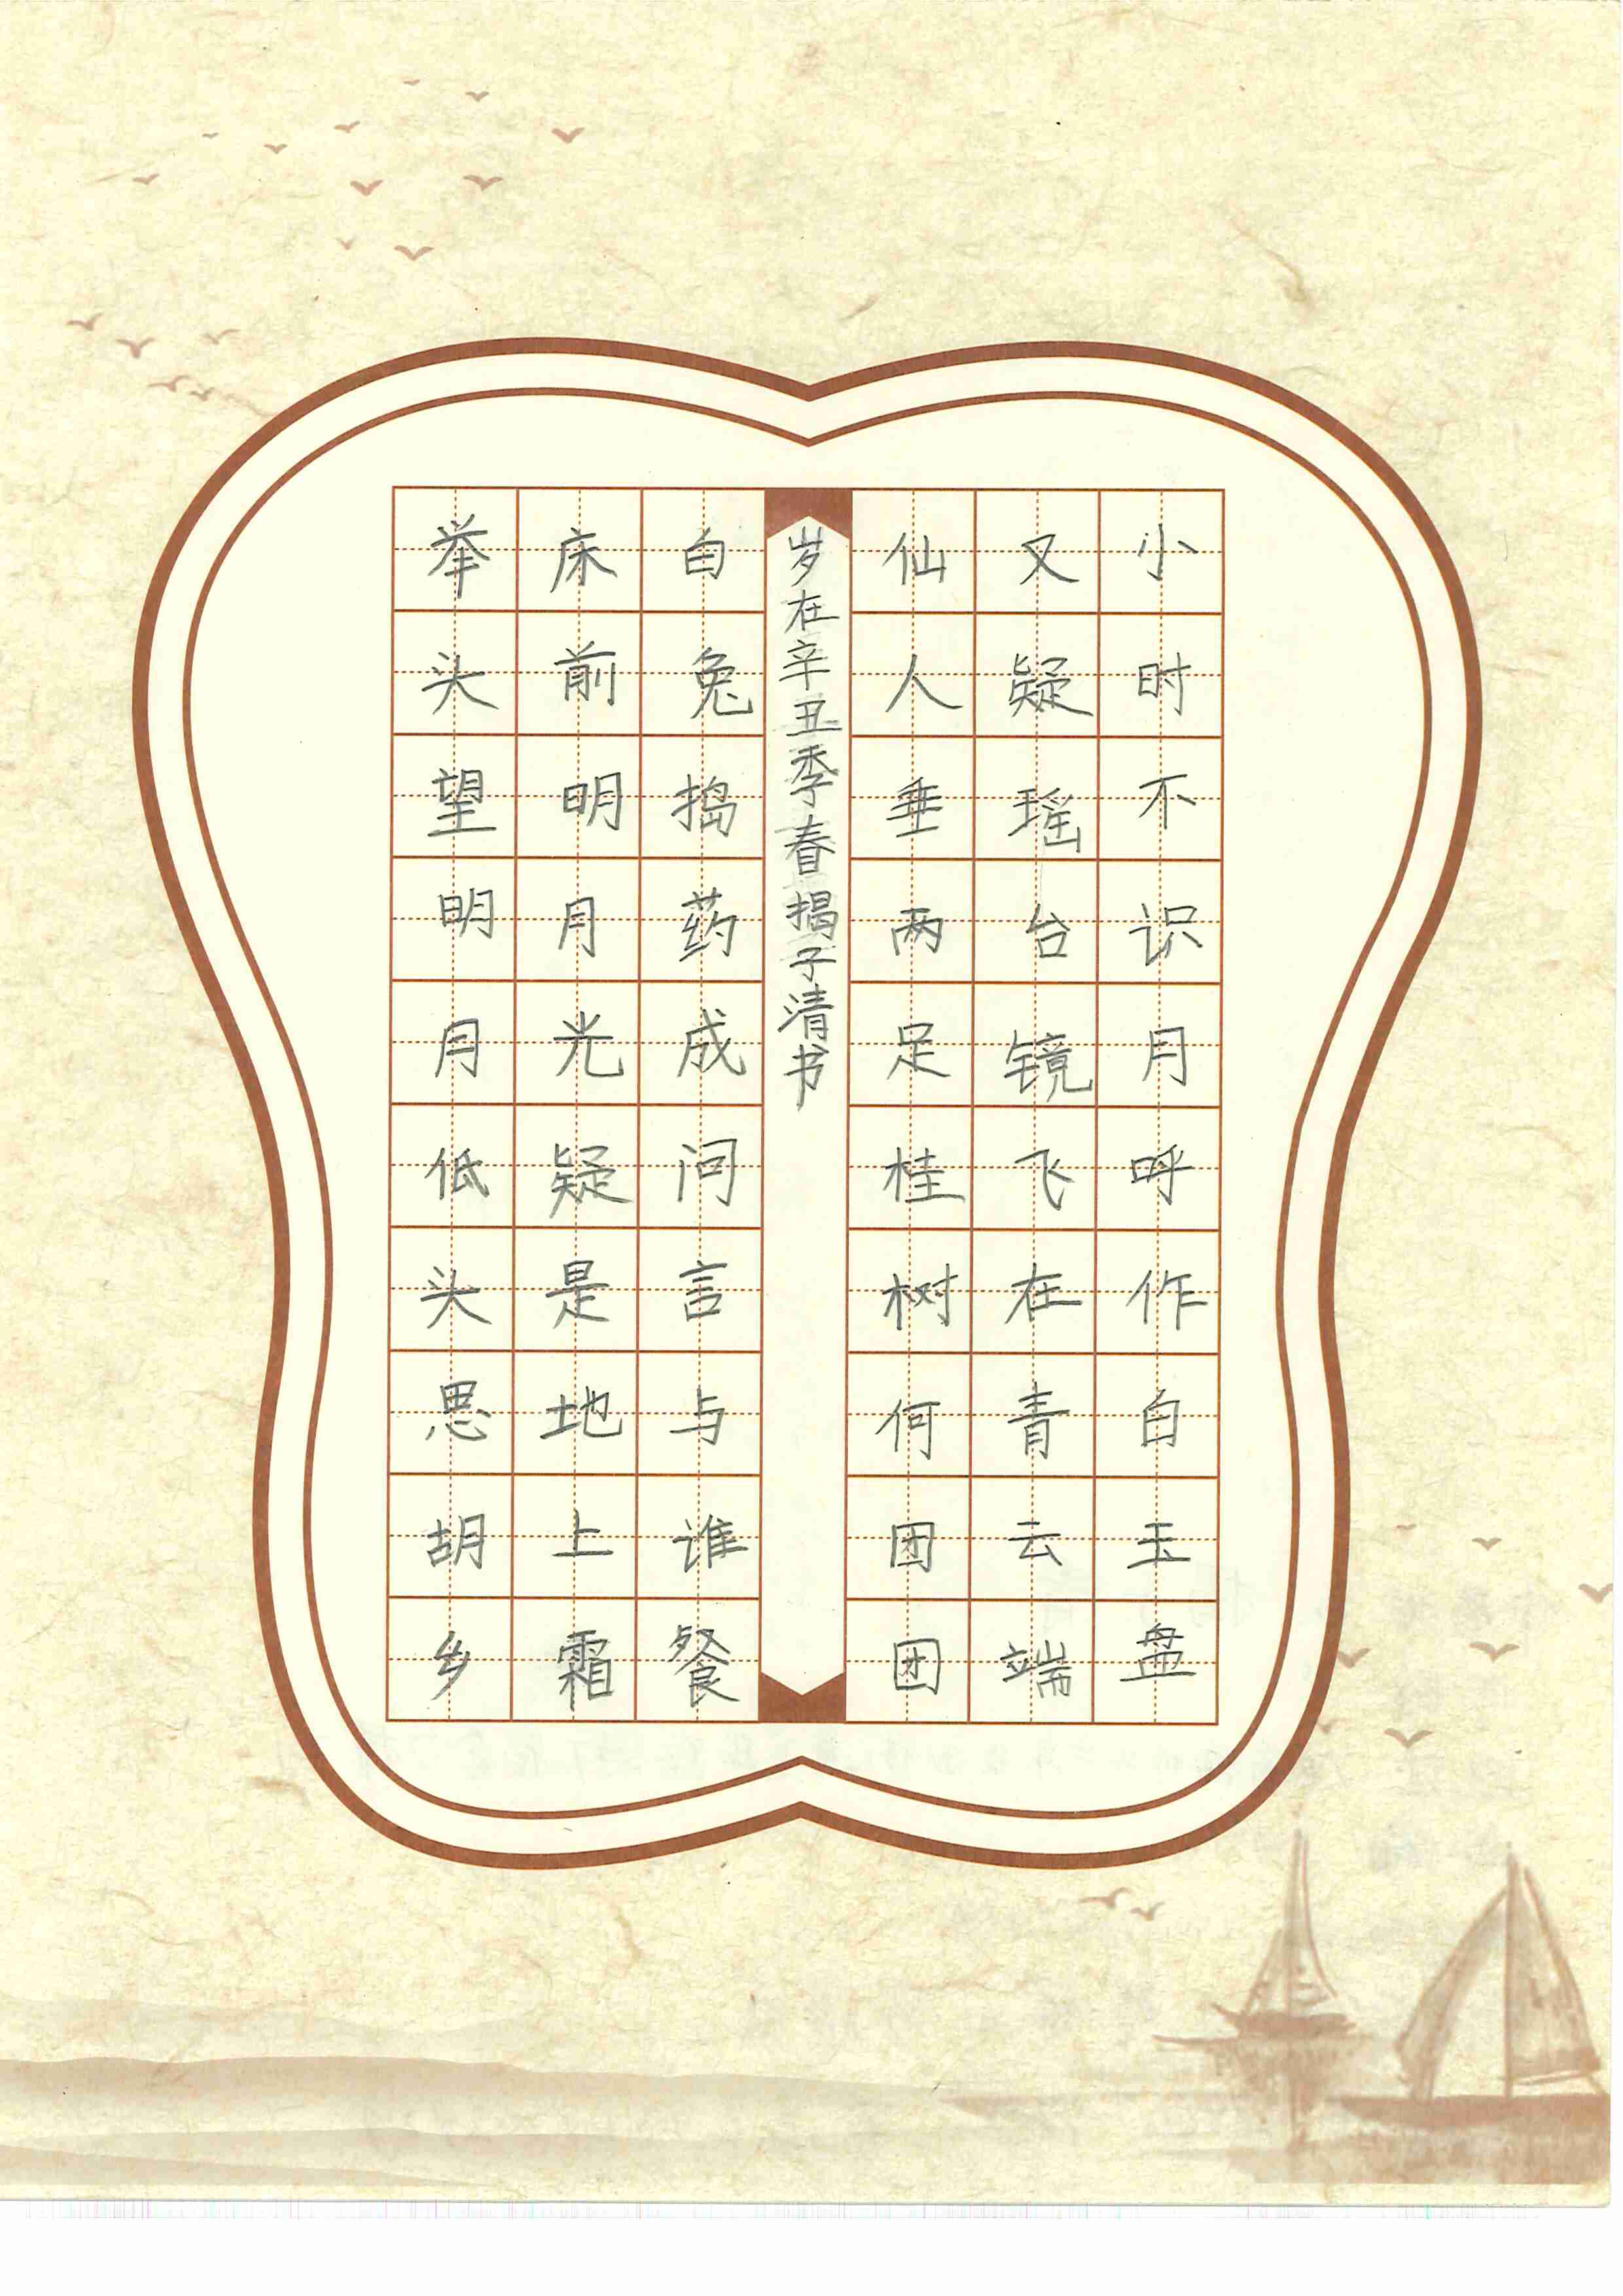 小时不识月呼作白玉盘
又疑瑶台镜飞在青云端
仙人垂两足桂树何团团
岁在辛丑季春揭子清书
白兔捣药成问言与谁餐
床前明月光疑是地上霜
举头望明月低头思胡乡